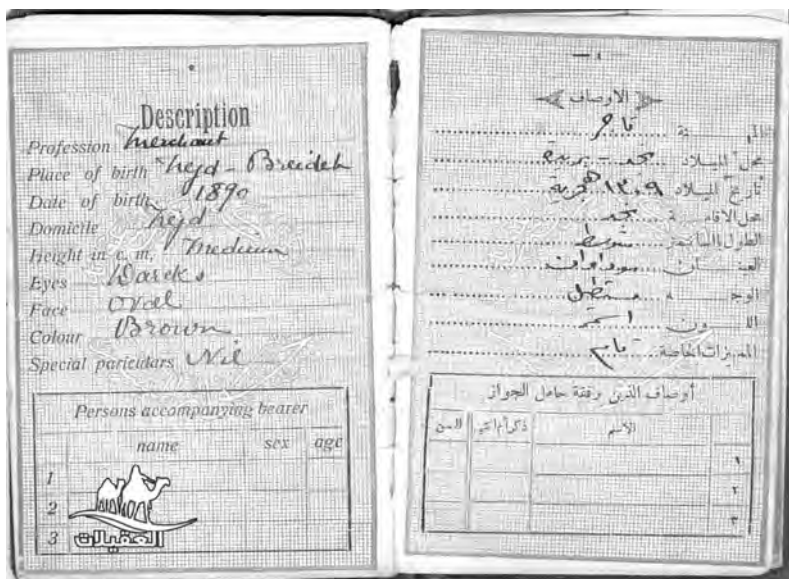 Description
Profession Merchant
Place of birth Nejd - Breideh
Date of birth 1890
Domicile Nejd
Height in c. m, Medium
Eyes Darcks
Face Oval
Colour Brown
Special pariculars Nil
Persons accompanying bearer
name sex age
1
2
3
العقيلات
— ٤ —
الاوصاف
المهنة تاجر
محل الميلاد نجد - بريدة
تاريخ الميلاد ١٣٠٩ هجرية
محل الاقامة نجد
الطول بالسانتيمتر متوسط
العينان سوداوات
الوجه مستطيل
اللون اسمر
المميزات الخاصة تام
أوصاف الذين رفقة حامل الجواز
الاسم ذكر أم انثى السن
١
٢
٣